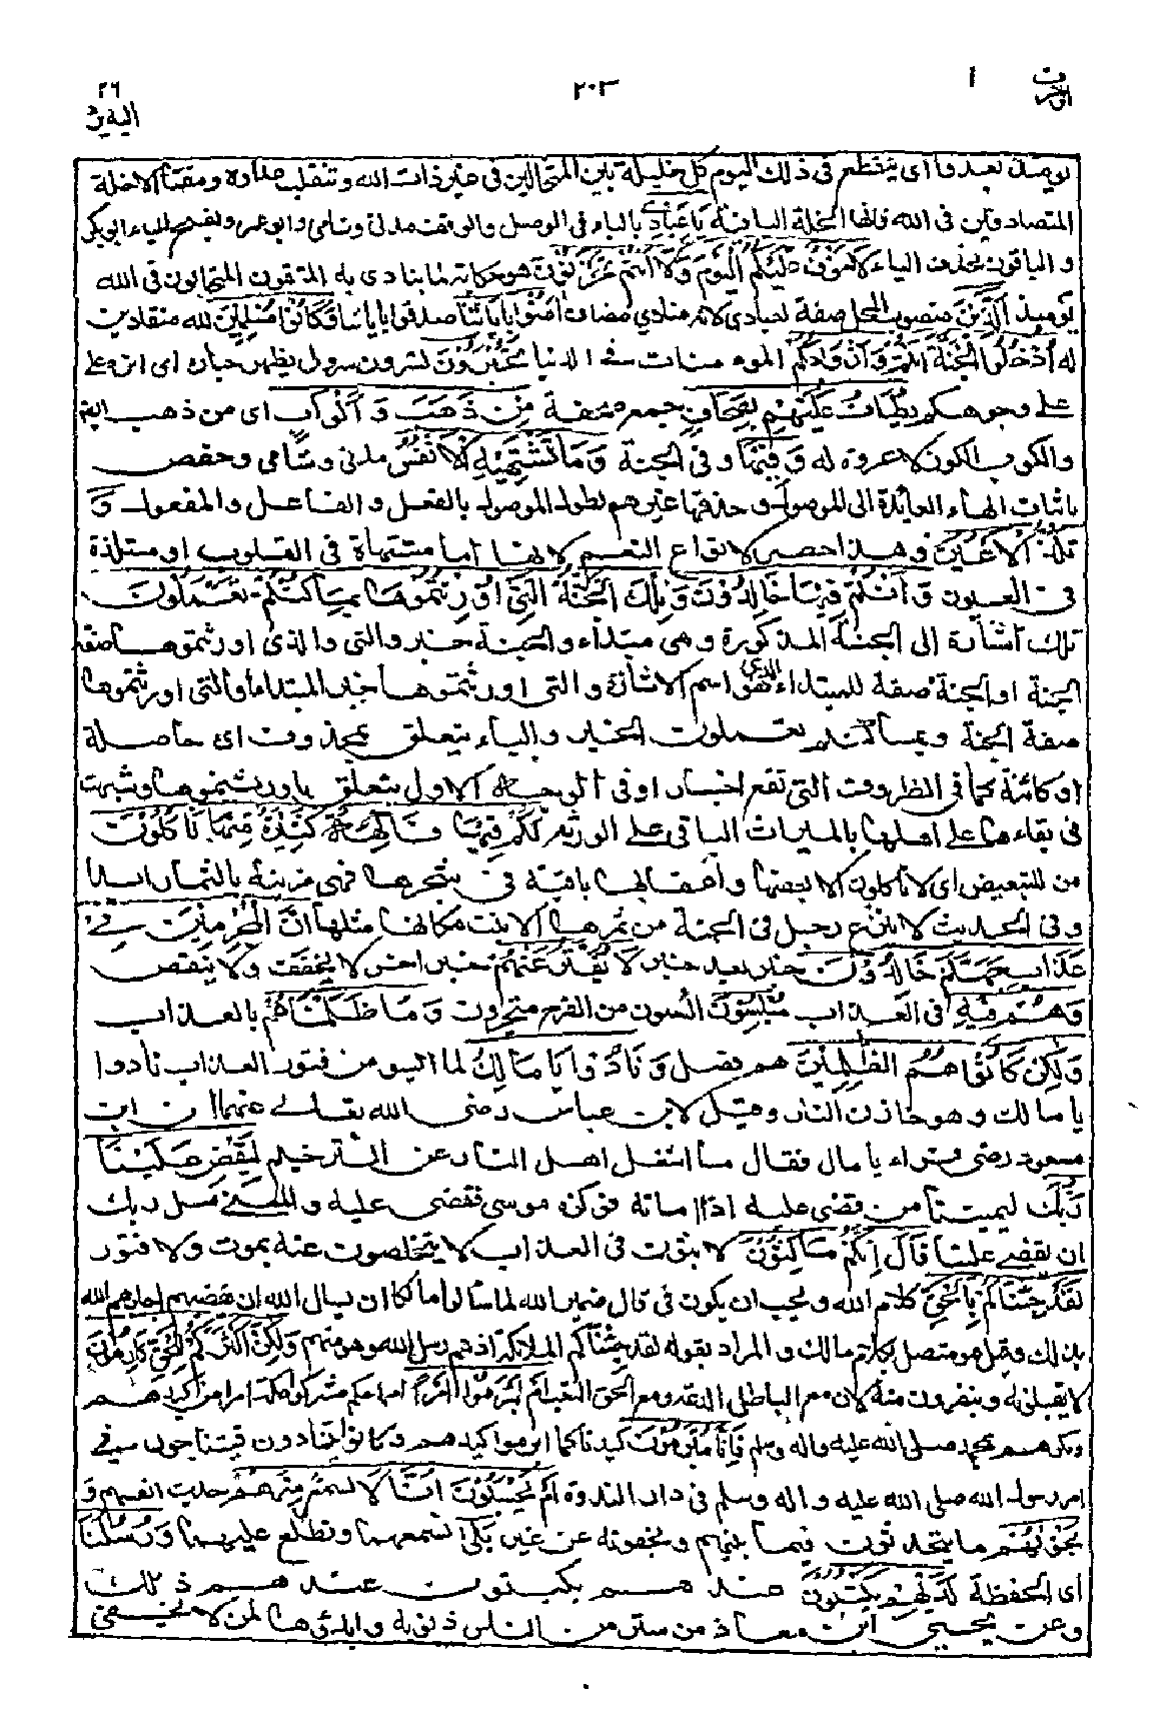 ٢٠٣
٢٦
يومئذ بعدوا اى ينقطع فى ذلك اليوم كل خليلة بين المتحالين فى غير ذات الله و تنقلب عداوة و مقتا الا خلة
المتصادقين فى الله فانها الخلة الباقية يَا عِبَادِي بالياء فى الوصل والوقف مدنى وشامى وابو عمرو وبفتح الياء ابو بكر
و الباقون بحذف الياء لَا خَوْفٌ عَلَيْكُمُ الْيَوْمَ وَلَا أَنْتُمْ تَحْزَنُوْنَ هو حكاية لما ينادى به المتقون المتحابون فى الله
يومئذ الَّذِيْنَ منصوب المحل صفة لعبادى لانه منادى مضاف اٰمَنُوْا بِاٰيَاتِنَا صدقوا باياتنا وَكَانُوْا مُسْلِمِيْنَ لله منقادين
له اُدْخُلُوا الْجَنَّةَ اَنْتُمْ وَاَزْوَاجُكُمْ المومنات فى الدنيا تُحْبَرُوْنَ تسرون سرورا يظهر حباره اى اثره على
على وجوهكم يُطَافُ عَلَيْهِمْ بِصِحَافٍ جمع صحفة مِنْ ذَهَبٍ وَّ اَكْوَابٍ اى من ذهب ايضا
والكوب الكوز لا عروة له وَفِيْهَا و فى الجنة وَمَا تَشْتَهِيْهِ الْاَنْفُسُ مدنى وشامى وحفص
باثبات الهاء العائدة الى الموصول و حذفها غيرهم لطول الموصول بالفعل و الفاعل و المفعول وَ
تَلَذُّ الْاَعْيُنُ و هذا حصر لانواع النعم لانها اما مشتهاة فى القلوب او مستلذة
فى العيون وَ اَنْتُمْ فِيْهَا خَالِدُوْنَ وَتِلْكَ الْجَنَّةُ الَّتِيْ اُوْرِثْتُمُوْهَا بِمَا كُنْتُمْ تَعْمَلُوْنَ
تلك اشارة الى الجنة المذكورة و هى مبتداء و الجنة خبر والتى والذى اورثتموها صفة
الجنة او الجنة صفة للمبتداء الذى هو اسم الاشارة و التى اورثتموها خبر المبتداء او التى اورثتموها
صفة الجنة و بما كنتم تعملون الخبر و الباء يتعلق بمحذوف اى حاصلة
او كائنة كما فى الظروف التى تقع اخبارا و فى الوجه الاول يتعلق باورثتموها وشبهت
فى بقاءها على اهلها بالميراث الباقى على الورثة لَكُمْ فِيْهَا فَاكِهَةٌ كَثِيْرَةٌ مِّنْهَا تَاْكُلُوْنَ
من للتبعيض اى لا تاكلون الا بعضها و اعقابها باقية فى شجرها فهى مزينة بالثمار ابدا
و فى الحديث لا ينزع رجل فى الجنة من ثمرها الا نبت مكانها مثلها اِنَّ الْمُجْرِمِيْنَ فِيْ
عَذَابِ جَهَنَّمَ خَالِدُوْنَ خبر بعد خبر لَا يُفَتَّرُ عَنْهُمْ خبر اخر لا يخفف و لا ينقص
وَهُمْ فِيْهِ فى العذاب مُبْلِسُوْنَ ائسون من الفرج متحيرون وَمَا ظَلَمْنَاهُمْ بالعذاب
وَلٰكِنْ كَانُوْا هُمُ الظّٰلِمِيْنَ هم فصل وَنَادَوْا يَا مَالِكُ لما ائسو من فتور العذاب نادوا
يا مالك و هو خازن النار و قيل لابن عباس رضى الله تعالى عنهما ان ابن
مسعود رضى قراء يا مال فقال ما اشغل اهل النار عن الترخيم لِيَقْضِ عَلَيْنَا
رَبُّكَ ليميتنا من قضى عليه اذا اماته فوكزه موسى فقضى عليه و المعنى سل ربك
ان يقضى علينا قَالَ اِنَّكُمْ مَّاكِثُوْنَ لابثون فى العذاب لا يتخلصون عنه بموت ولا فتور
لَقَدْ جِئْنَاكُمْ بِالْحَقِّ كلام الله و يجب ان يكون فى قال ضمير الله لما سالوا مالكا ان يسال الله ان يقضيهم اجابهم الله
بذلك وقيل هو متصل بكلام مالك و المراد بقوله لقد جئناكم الملائكة اذ هم رسل الله وهو منهم وَلٰكِنَّ اَكْثَرَكُمْ لِلْحَقِّ كَارِهُوْنَ
لا يقبلونه وينفرون منه لان مع الباطل الدعة ومع الحق التعب اَمْ اَبْرَمُوْا اَمْرًا ام احكم مشركوا مكة امرا من كيدهم
ومكرهم بمحمد صلى الله عليه واله وسلم فَاِنَّا مُبْرِمُوْنَ كيدنا كما ابرموا كيدهم و كانوا يتنادون فيتناجون فى
امر رسول الله صلى الله عليه و اله وسلم فى دار الندوة اَمْ يَحْسَبُوْنَ اَنَّا لَا نَسْمَعُ سِرَّهُمْ حديث انفسهم وَ
نَجْوٰىهُمْ ما يتحدثون فيما بينهم و يخفونه عن غيرهم بَلٰى نسمعهما ونطلع عليهما وَ رُسُلُنَا
اى الحفظة لَدَيْهِمْ يَكْتُبُوْنَ عندهم يكتبون عندهم ذلك
وعن يحيى ابن معاذ من ستر من الناس ذنوبه و ابداها لمن لا يخفى